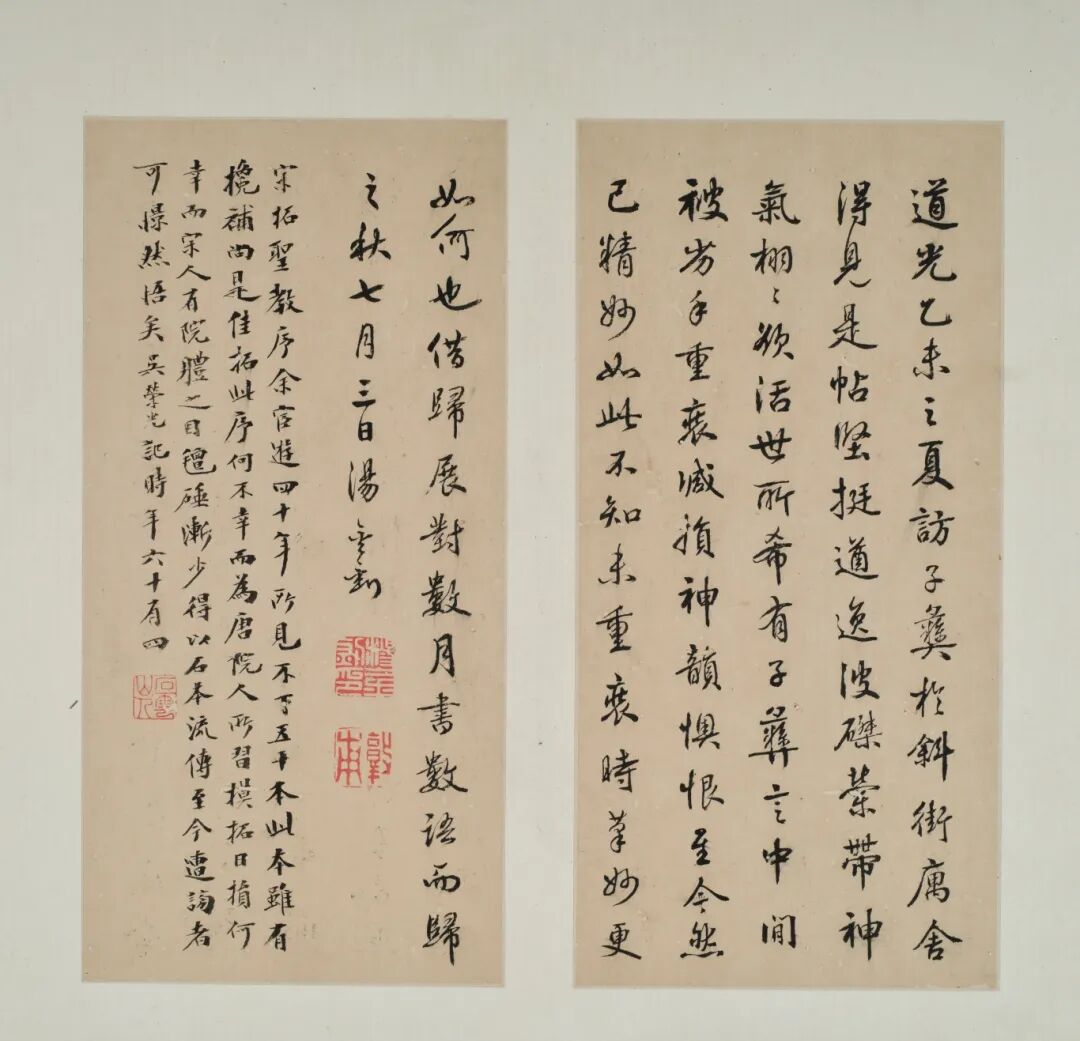 道光乙未之夏訪子彝於斜街寓舍
得見是帖堅挺遒逸波磔縈帶神
氣栩〻欲活世所希有子彝言中間
被劣手重裝減損神韻惧恨至今然
已精妙如此不知未重裝時筆妙更
如何也借歸展對數月書數語而歸
之秋七月三日湯金釗
宋拓聖教序余宦遊四十年所見不下五十本此本雖有
攙補尚是佳拓此序何不幸而為唐院人所習摸拓日損何
幸而宋人有院體之目氊碓漸少得以石本流傳至今書詢者
可憬然悟矣吳榮光記時年六十有四